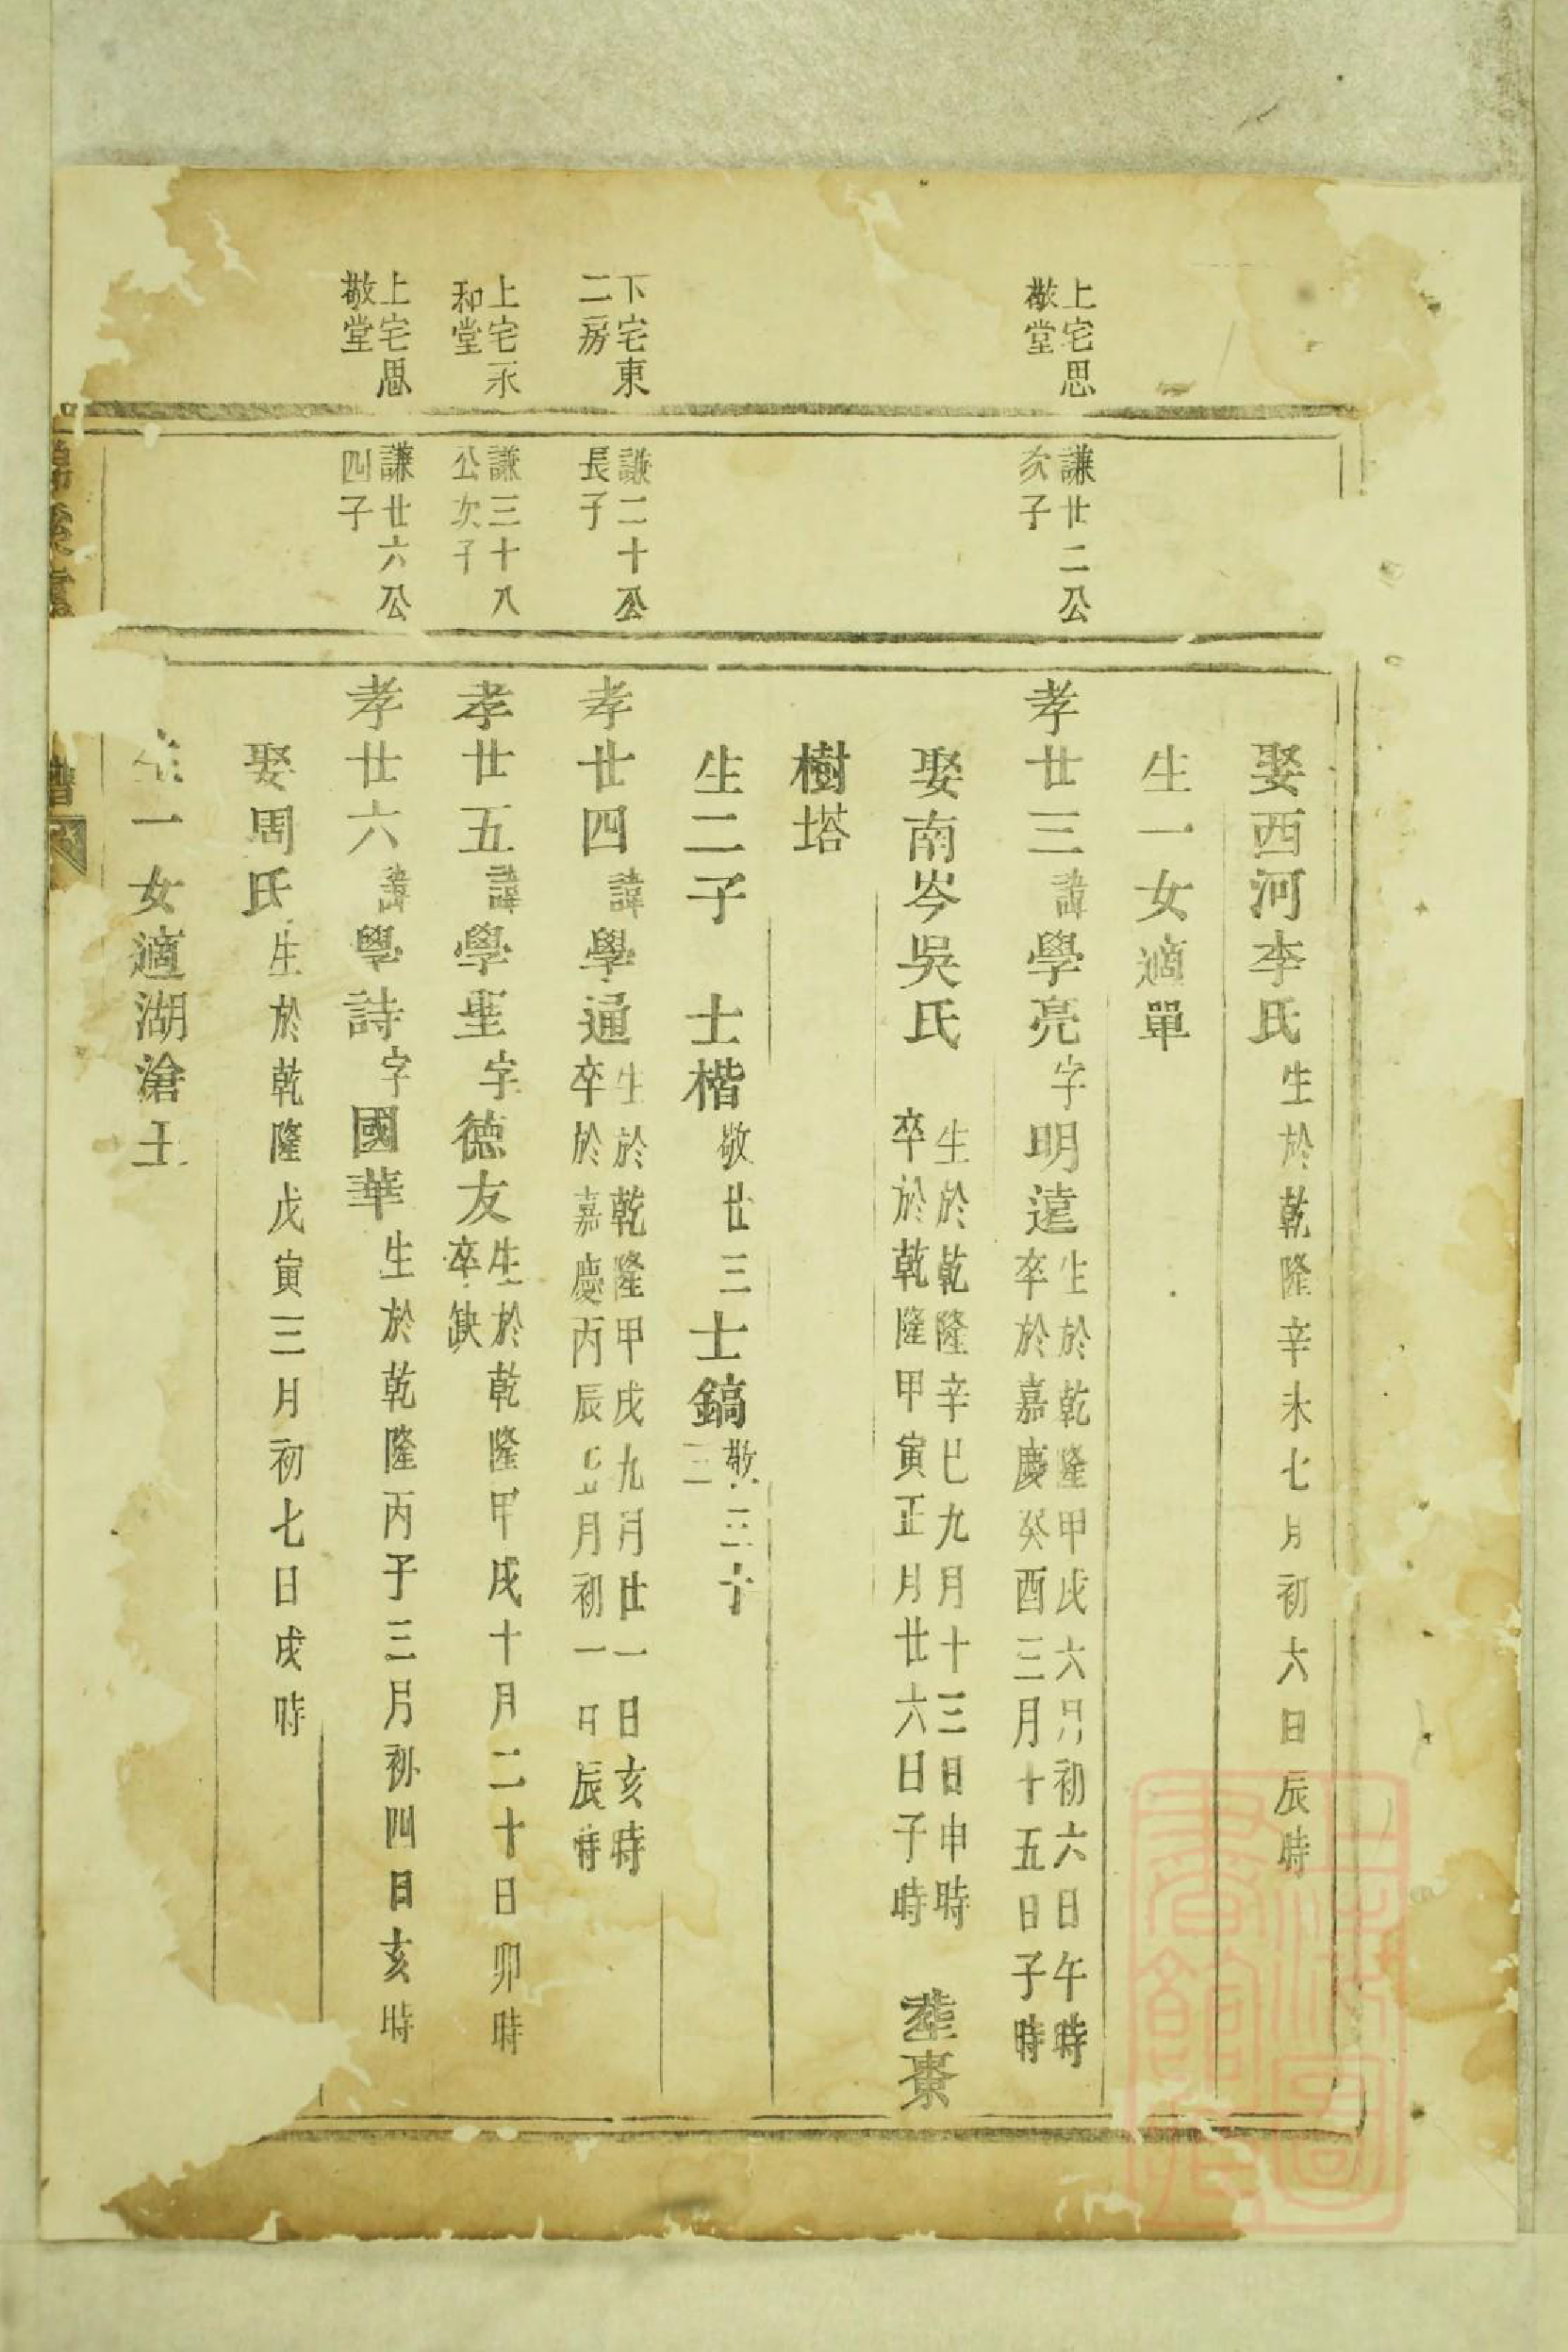 娶西河李氏生於乾隆辛未七月初六日辰時
生一女適單
上宅思敬堂
謙廿二公次子
孝廿三諱學亮字明遠生於乾隆甲戌六月初六日午時卒於嘉慶癸酉三月十五日子時
娶南岑吳氏生於乾隆辛巳九月十三日申時卒於乾隆甲寅正月廿六日子時 塟棗
樹塔
生二子 士楷敬廿三士鎬敬三十三
下宅東二房
謙二十公長子
孝廿四諱學通生於乾隆甲戌九月廿一日亥時卒於嘉慶丙辰月初一日辰時
上宅永和堂
謙三十八公次子
孝廿五諱學聖字德友生於乾隆甲戌十月二十日卯時卒缺
上宅思敬堂
謙廿六公四子
孝廿六諱學詩字國華生於乾隆丙子三月初四日亥時
娶周氏生於乾隆戊寅三月初七日戌時
生一女適湖滄王